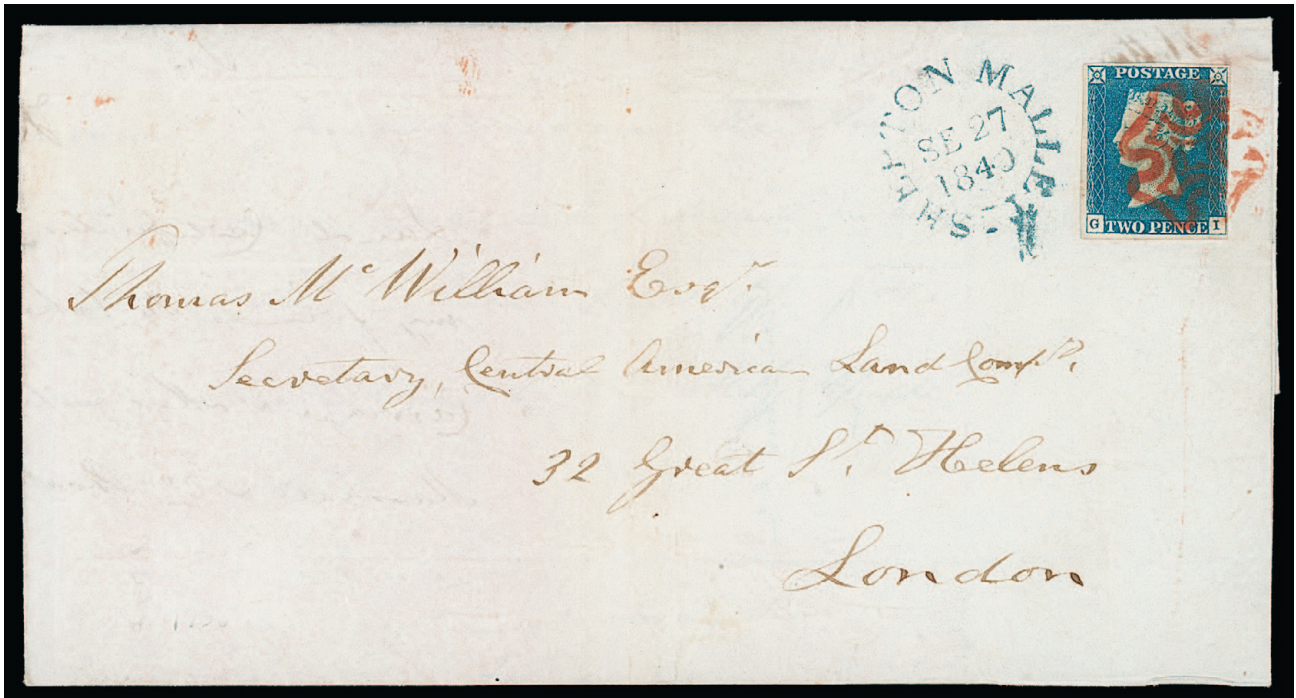 SHEPTON MALLET
SE 27
1840
POSTAGE
G TWO PENCE I
Thomas Mc William Esqr.
Secretary, Central American Land Compy.
32 Great St. Helens
London